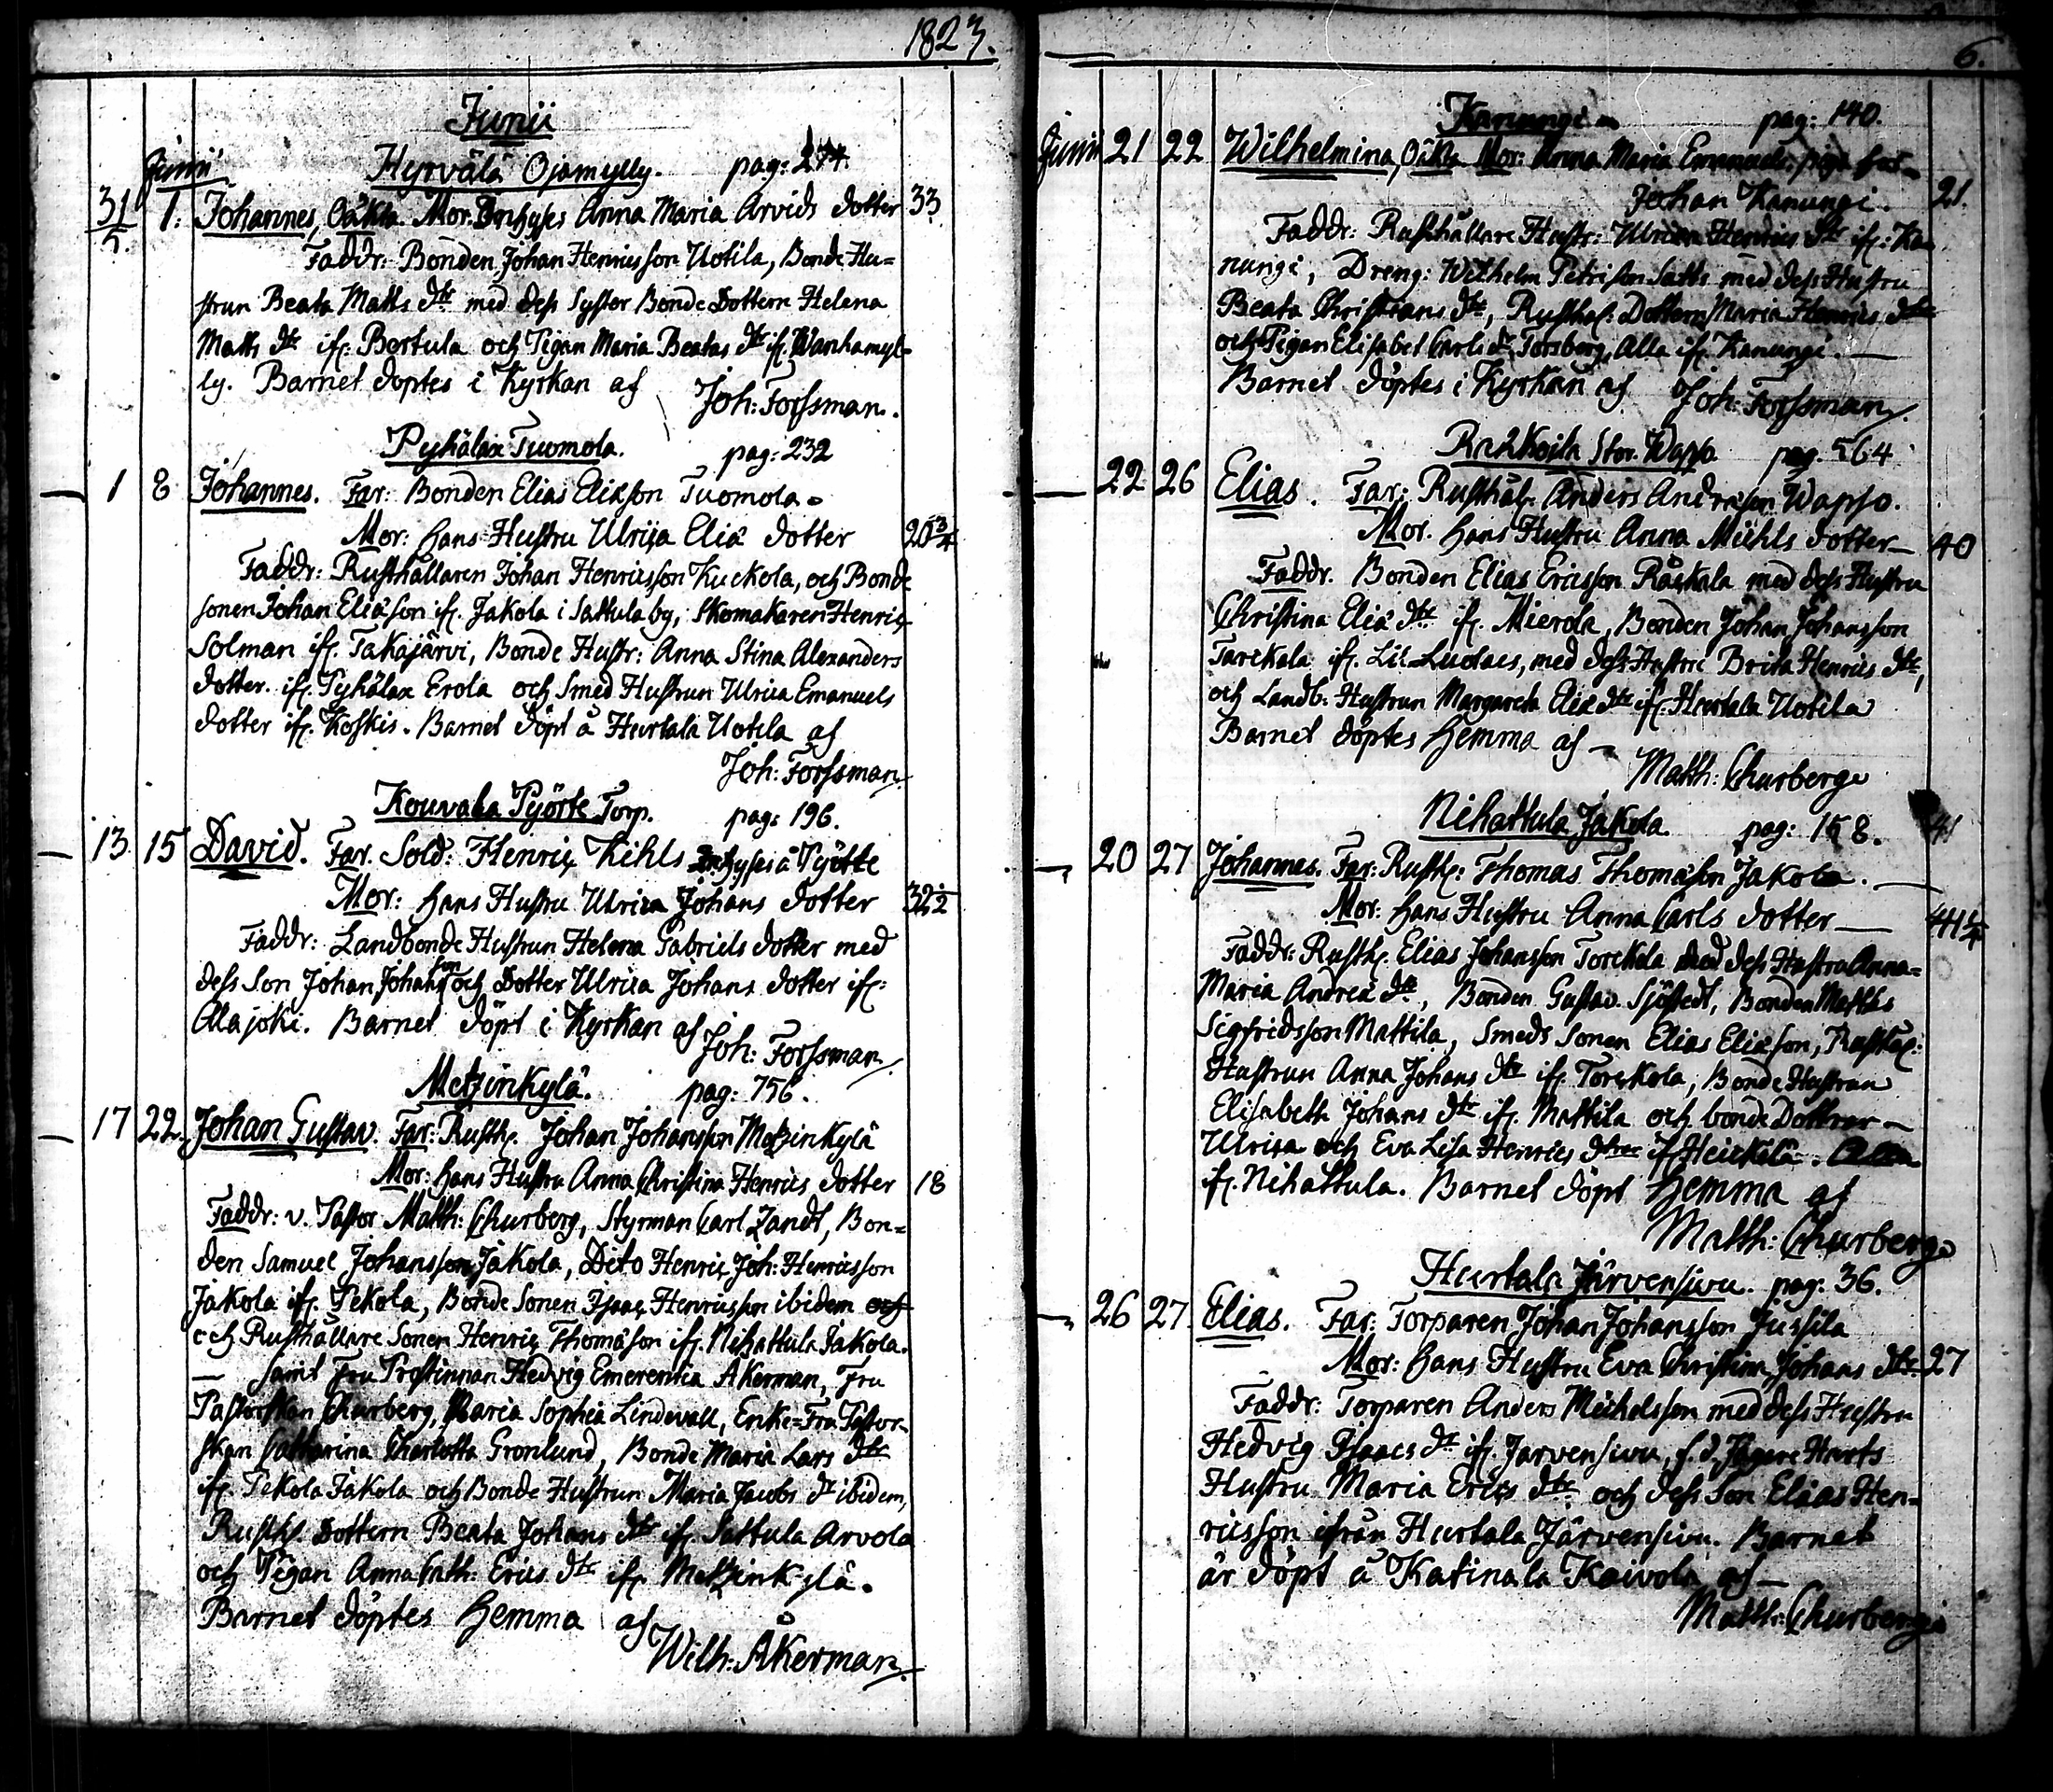 1823.
Junii
Junii Hyrvälä Ojamylly. pag: 274.
31/5. 1. Johannes, Oäkta Mor. Inhyses Anna Maria Arvids dotter 33
Faddr: Bonden Johan Henricsson Uotila, Bonde Hu=
strun Beata Matts dtr med dess Syster Bonde Dottern Helena
Matts dtr ifr. Bertula och Pigan Maria Beatas dtr ifr. Wanhamyl=
ly. Barnet döptes i Kyrkan af Joh: Forssman.
Pyhälax Tuomola. pag: 232
— 1 8 Johannes. Far: Bonden Elias Eliæson Tuomola.
Mor: hans Hustru Ulrica Eliæ dotter 20 3/4
Faddr: Rusthållaren Johan Henricsson Kuckola, och Bonde
sonen Johan Eliæson ifr. Jakola i Sattula by, Skomakaren Henric
Solman ifr. Takajärvi, Bonde Hustr: Anna Stina Alexanders
dotter ifr. Pyhälax Erola och Smed Hustrun Ulrica Emanuels
dotter ifr. Koskis. Barnet döpt å Hurtala Uotila af
Joh: Forssman
Kouvala Pyörte Torp. pag: 196.
— 13 15 David. Far. Sold: Henric Kihls Inhyses å Pyötte
Mor: hans Hustru Ulrica Johans dotter 32 1/2
Faddr: Landbonde Hustrun Helena Gabriels dotter med
dess Son Johan Johansson och Dotter Ulrica Johans dotter ifr:
Alajoki. Barnet döpt i Kyrkan af Joh: Forssman
Metzinkylä. pag: 756.
— 17 22. Johan Gustav. Far: Rusth. Johan Johansson Metzinkylä
Mor: hans Hustru Anna Christina Henrics dotter 18
Faddr: v. Pastor Matth: Churberg, Styrman Carl Zandt, Bon=
den Samuel Johansson Jakola, Dito Henric Joh: Henricsson
Jakola ifr. Pekola, Bonde Sonen Isaac Henricsson ibidem och
och Rusthållare Sonen Henric Thomæson ifr. Nihattula Jakola.
— samt Fru Prostinnan Hedvig Emerentia Åkerman, Fru
Pastorskan Churberg, Maria Sophia Lindevall, Enke=Fru Pastor-
skan Catharina Charlotta Gronlund, Bonde Maria Lars dtr
ifr. Pekola Jakola och Bonde Hustrun Maria Jacobs dr ibidem,
Rusth. Dottern Beata Johans dtr ifr. Sattula Arvola
och Pigan Anna Cath: Erics dtr ifr. Metzinkylä.
Barnet döptes hemma af
Wilh: Åkerman.
6.
Kanungi pag: 140.
Junii 21 22 Wilhelmina, Oäkta Mor: Anna Maria Emanuels, piga hos
Johan Kanungi. 21.
Faddr: Rusthållare Hustr: Ulrica Henrics dtr ifr: Ka
nungi, Dreng: Wilhelm Petrison Satts med dess Hustru
Beata Christians dtr, Rusthål. Dottern Maria Henrics dtr
och Pigan Elisabet Carls dr Forsberg, Alla ifr. Kanungi. —
Barnet döptes i Kyrkan af Joh: Forssman
Stor Wapo pag. 564
— 22 26 Elias. Far: Rusthål. Anders Andræson Wapso.
Mor. hans Hustru Anna Michls dotter — 40
Faddr. Bonden Elias Ericsson Råskala med dess Hustru
Christina Eliæ dtr ifr. Mierola, Bonden Johan Johansson
Tarckala ifr. Lil-Luolais, med dess Hustru Brita Henrics dtr,
och Landb: Hustrun Margareta Eliæ dtr ifr. Hurtala Uotila
Barnet döptes hemma af —
Matth: Churberg
Nihattula Jakola. pag: 158. 41
— 20 27 Johannes. Far: Rusth: Thomas Thomæson Jakola. —
Mor: hans Hustru Anna Carls dotter — 41 1/4
Faddr: Rusth. Elias Johansson Torckola med dess Hustru Anna=
Maria Andreæ dtr, Bonden Gustav Sjöstedt, Bonden Matths
Sigfridsson Mattila, Smeds Sonen Elias Eliæson, Rusthål:
Hustrun Anna Johans dtr ifr. Torckola, Bonde Hustrun
Elisabeth Johans dtr ifr. Mattila och bonde Dottrar —
Ulrica och Eva Lisa Henrics dtrar ifr Heickilä. Alla
ifr. Nihattula. Barnet döpt hemma af
Matth: Churberg
Hurtala Järvensivu. pag: 36.
— 26 27. Elias. Far: Torparen Johan Johansson Jussila
Mor: hans Hustru Eva Christina Johans dtr. 27
Faddr: Torparen Anders Michelsson med dess Hustru
Hedvig Isaacs dr ifr. Jarvensivu, f.d. Jägare Hurts
Hustru Maria Erics dtr och dess Son Elias Hen-
ricsson ifrån Hurtala Järvensivu. Barnet
är döpt å Katinala Kaivola af —
Matth: Churberg